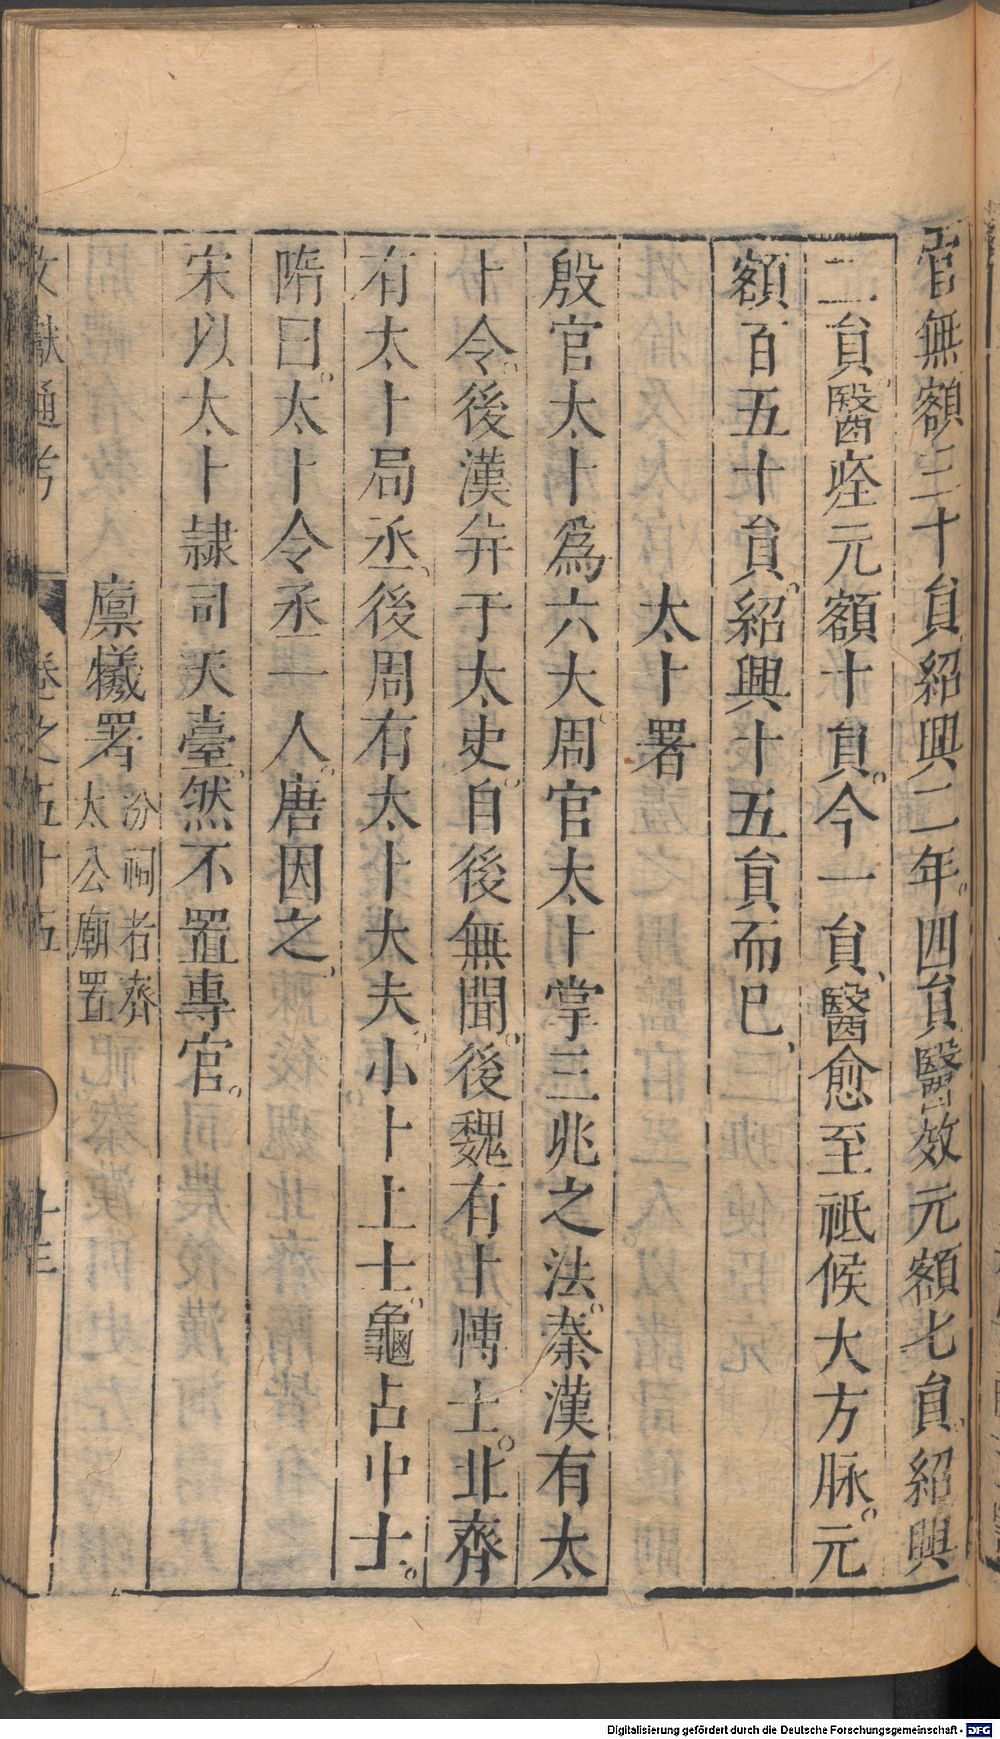 官無額三十員紹興二年四員醫效元額七員紹興
二員醫痊元額十員今一員醫愈至祗候大方脉元
額百五十員紹興十五員而已
太卜署
殷官太卜爲六大周官太卜掌三兆之法秦漢有太
卜令後漢并于太史自後無聞後魏有卜博士北齊
有太卜局丞後周有太卜大夫小卜上士龜占中士
隋曰太卜令丞一人唐因之
宋以太卜隷司天臺然不置專官
廪犧署汾祠者齊太公廟置
文獻通考 卷之五十五
Digitalisierung gefördert durch die Deutsche Forschungsgemeinschaft - DFG